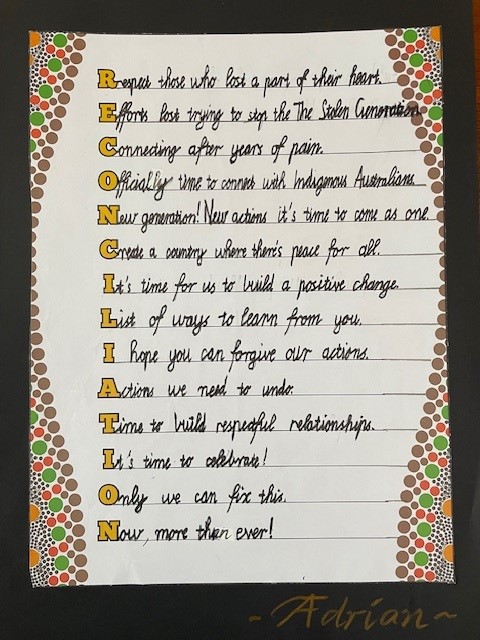 Respect those who lost a part of their heart.
Efforts lost trying to stop the The Stolen Generation
Connecting after years of pain.
Officially time to connect with Indigenous Australians.
New generation! New actions it's time to come as one.
Create a country where there's peace for all.
It's time for us to build a positive change.
List of ways to learn from you.
I hope you can forgive our actions.
Actions we need to undo.
Time to build respectful relationships.
It's time to celebrate!
Only we can fix this.
Now, more than ever!
~Adrian~